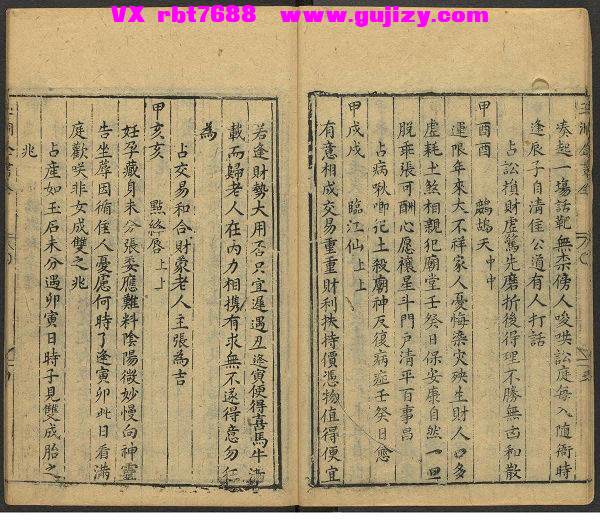 VX rbt7688 www.gujizy.com
湊起一場話靶無柰傍人唆哄訟庭每入隨衙時
逢辰子自清佳公道有人打話
占訟損財虛驚先磨折後得理不勝無凶和散
甲酉酉 鷓鴣天 中中
運限年來大不祥家人憂悔染災殃生財人口多
虛耗土煞相親犯廟堂壬癸日保安康自然一旦
脫乖張可酬心愿禳星斗門戶清平百事昌
占病啾唧記土殺廟神反復病症壬癸日愈
甲戌戌 臨江仙 上上
有意相成交易重重財利扶持價憑物值得便宜
若逢財勢大用否只宜遲遇丑逢寅便得喜馬牛滿
載而歸老人在內力相携有求無不遂得意勿狂
為
占交易和合財豪老人主張為吉
甲亥亥 點絳唇 上上
妊孕藏身未分張委應難料陰陽微妙慢向神靈
告坐蓐因循佳人憂慮何時了逢寅卯此日看滿
庭歡咲非女成雙之兆
占產如玉石未分遇卯寅日時子見雙成胎之
兆